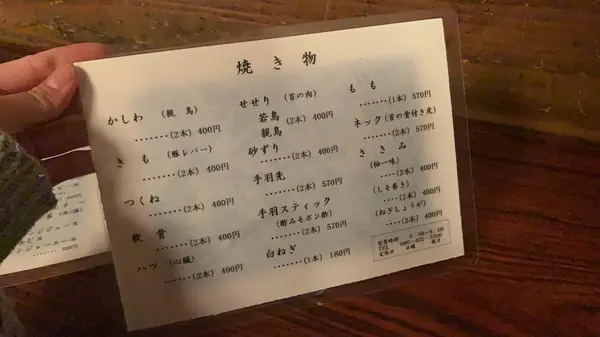 焼き物
かしわ (親鳥)
……(2本) 400円
きも (豚レバー)
……(2本) 400円
つくね
……(2本) 400円
軟骨
……(2本) 400円
ハツ (心臓)
……(2本) 400円
せせり (首の肉)
若鳥 (2本) 400円
親鳥
砂ずり
……(2本) 400円
手羽先
……(2本) 570円
手羽スティック
(酢みそポン酢)
……(2本) 570円
白ねぎ
……(1本) 180円
もも
……(1本) 570円
ネック (首の骨付き皮)
……(2本) 400円
ささみ
(柚一味)
……(2本) 400円
(しそ巻き)
……(2本) 400円
(ねぎしょうが)
……(2本) 400円
営業時間
TEL
定休日 日曜 祝日